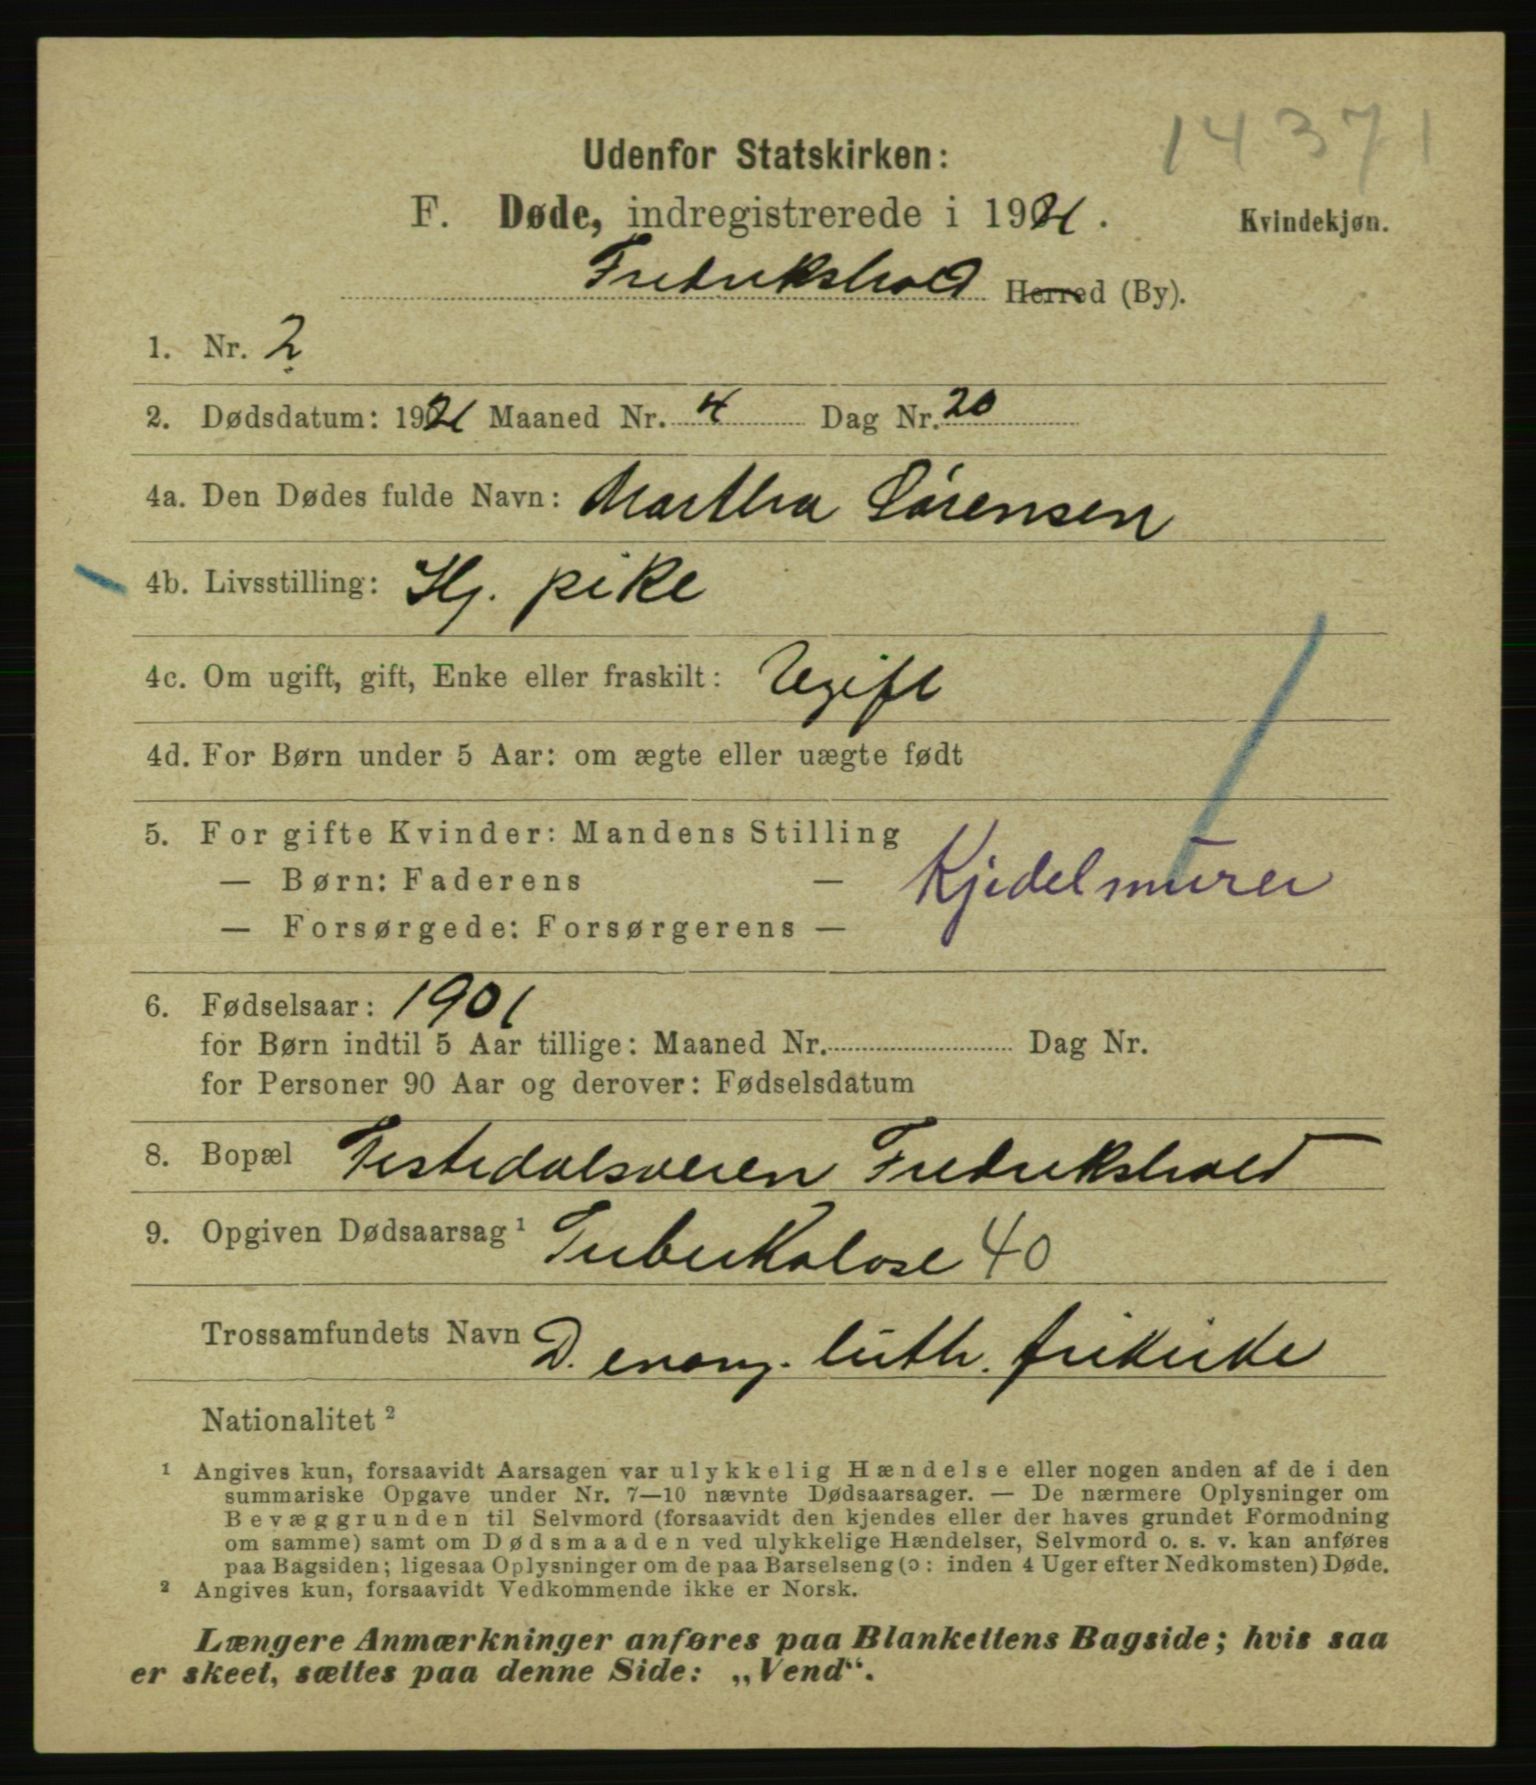 14371
Udenfor Statskirken:
F. Døde, indregistrerede i 1921.
Kvindekjøn.
Fredrikshald Herred (By).
1. Nr. 2
2. Dødsdatum: 1921 Maaned Nr. 4 Dag Nr. 20
4a. Den Dødes fulde Navn: Martha Sørensen
4b. Livsstilling: Hj. pike
4c. Om ugift, gift, Enke eller fraskilt: Ugift
4d. For Børn under 5 Aar: om ægte eller uægte født
5. For gifte Kvinder: Mandens Stilling
— Børn: Faderens — Kjedelmurer
— Forsørgede: Forsørgerens —
6. Fødselsaar: 1901
for Børn indtil 5 Aar tillige: Maaned Nr. Dag Nr.
for Personer 90 Aar og derover: Fødselsdatum
8. Bopæl Tistedalsveien Fredrikshald
9. Opgiven Dødsaarsag ¹ Tuberkolose 40
Trossamfundets Navn D. evang. luth. frikirke
Nationalitet ²
¹ Angives kun, forsaavidt Aarsagen var ulykkelig Hændelse eller nogen anden af de i den
summariske Opgave under Nr. 7—10 nævnte Dødsaarsager. — De nærmere Oplysninger om
Bevæggrunden til Selvmord (forsaavidt den kjendes eller der haves grundet Formodning
om samme) samt om Dødsmaaden ved ulykkelige Hændelser, Selvmord o. s. v. kan anføres
paa Bagsiden; ligesaa Oplysninger om de paa Barselseng (ɔ: inden 4 Uger efter Nedkomsten) Døde.
² Angives kun, forsaavidt Vedkommende ikke er Norsk.
Længere Anmærkninger anføres paa Blankettens Bagside; hvis saa
er skeet, sættes paa denne Side: „Vend“.